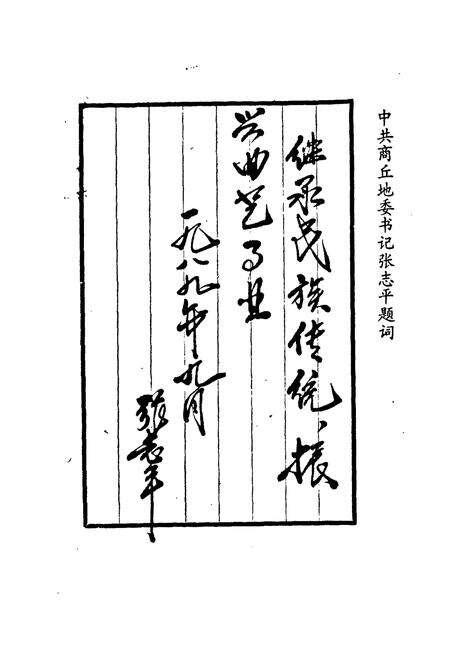 中共商丘地委书记张志平题词
继承民族传统、振
兴曲艺事业
一九八九年九月
张志平